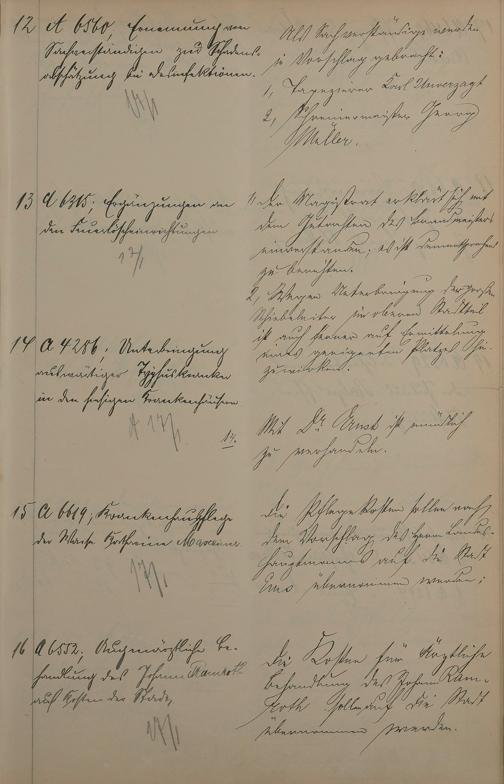 12 A 6560, Ernennung von
Sachverständigen zur Schadens-
abschätzung bei Desinfektionen.
17/1
Als Sachverständige werden
in Vorschlag gebracht:
1, Tapezierer Karl Unverzagt
2, Schreinermeister Georg
Müller.
13 A 6215; Ergänzungen an
den Feuerlöscheinrichtungen
17/1
1, Der Magistrat erklärt sich mit
dem Gutachten des Brandmeisters
einverstanden; es ist dementsprechend
zu berichten.
2, Wegen Unterbringung der großen
Schiebeleiter im oberen Stadtteil
ist auf Ermittelung
eines geeigneten Platzes hin
zuwirken.
14 A 4286; Unterbringung
auswärtiger Typhuskranke
in den hiesigen Krankenhäusern
A 17/1
14.
Mit Dr. Ernst ist mündlich
zu verhandeln.
15 A 6619; Krankenhauspflege
der Katharine
17/1
Die Pflegekosten sollen nach
dem Vorschlag des Herrn Landes-
hauptmanns auf die Stadt
Ems übernommen werden;
16 A 6552; Augenärztliche Be-
handlung des Johann Ramroth
auf Kosten der Stadt,
17/1
Die Kosten für Ärztliche
Behandlung des Johann Ram-
roth sollen auf die Stadt
übernommen werden.